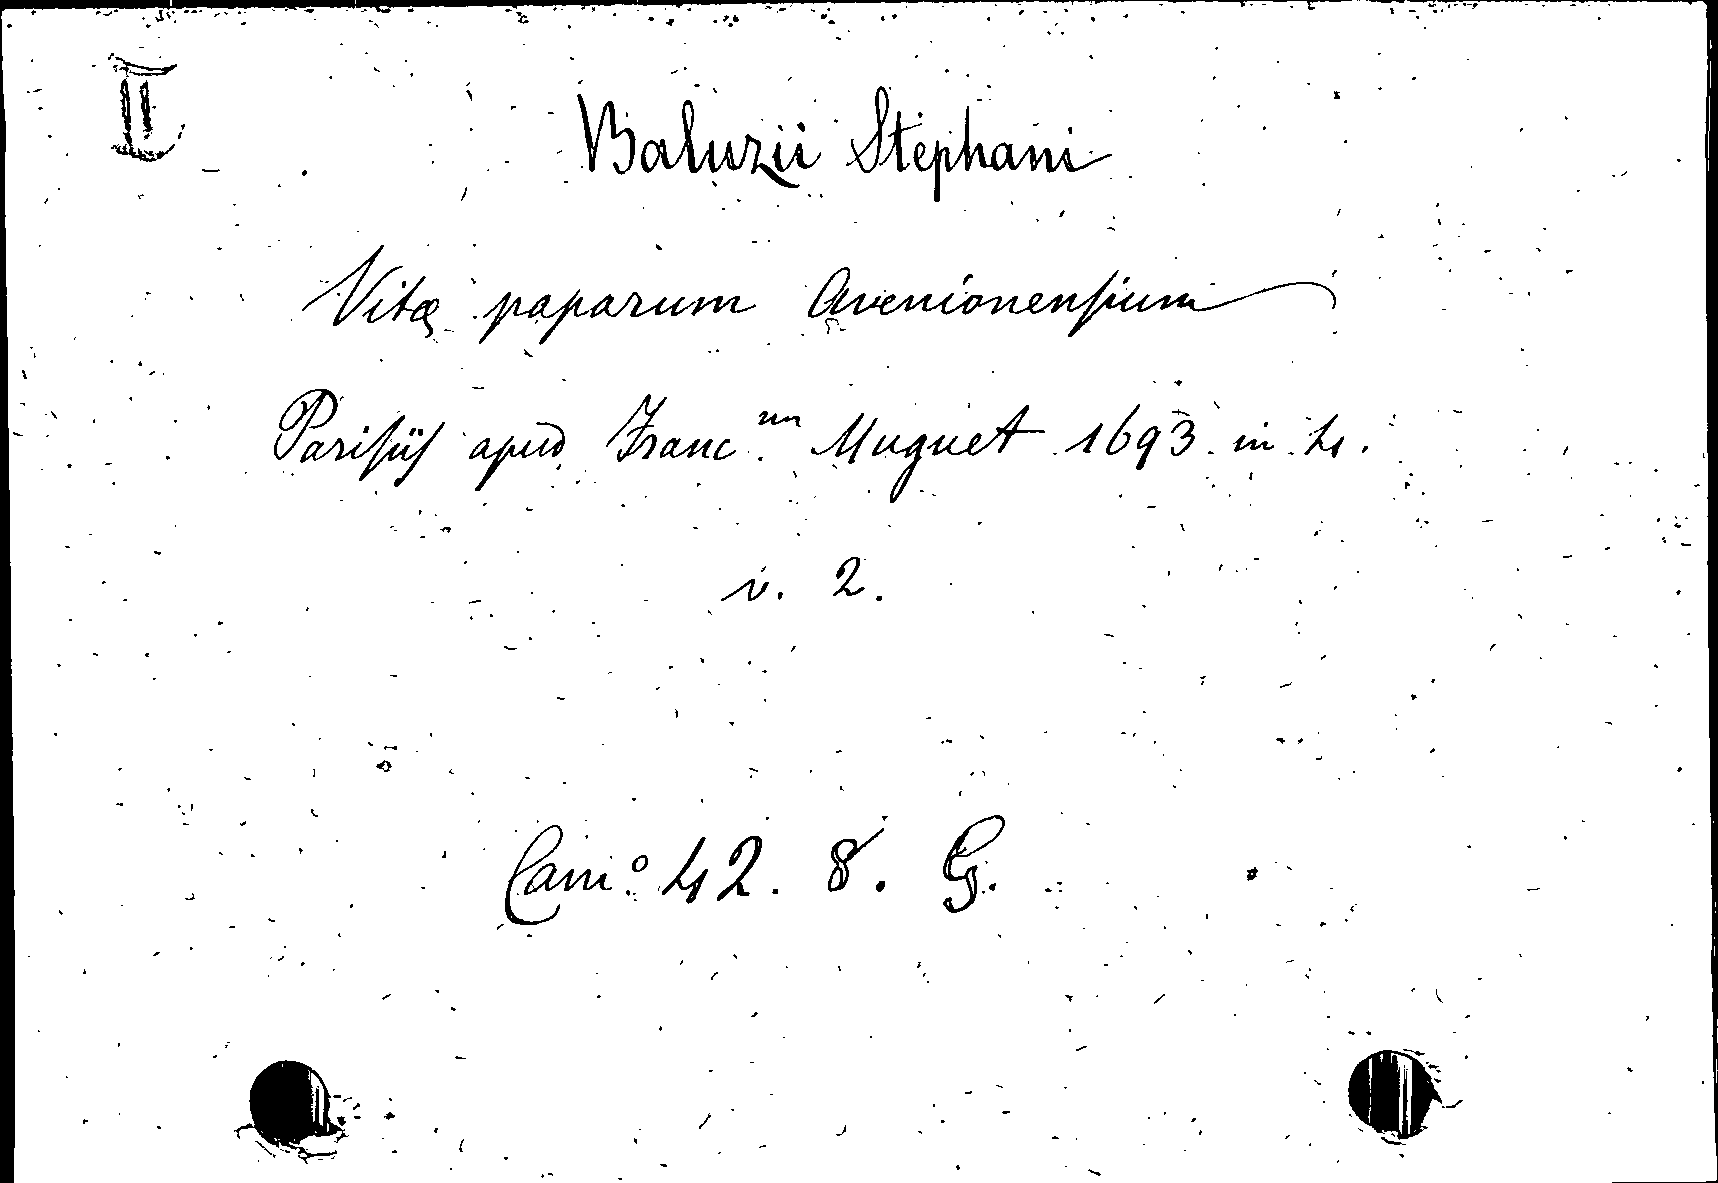 II
Baluzii Stephani
Vitæ paparum Avenionensium
Parisiis apud Franc.um Muguet 1693 in 4.
v. 2.
Cam.º 42. 8. G.